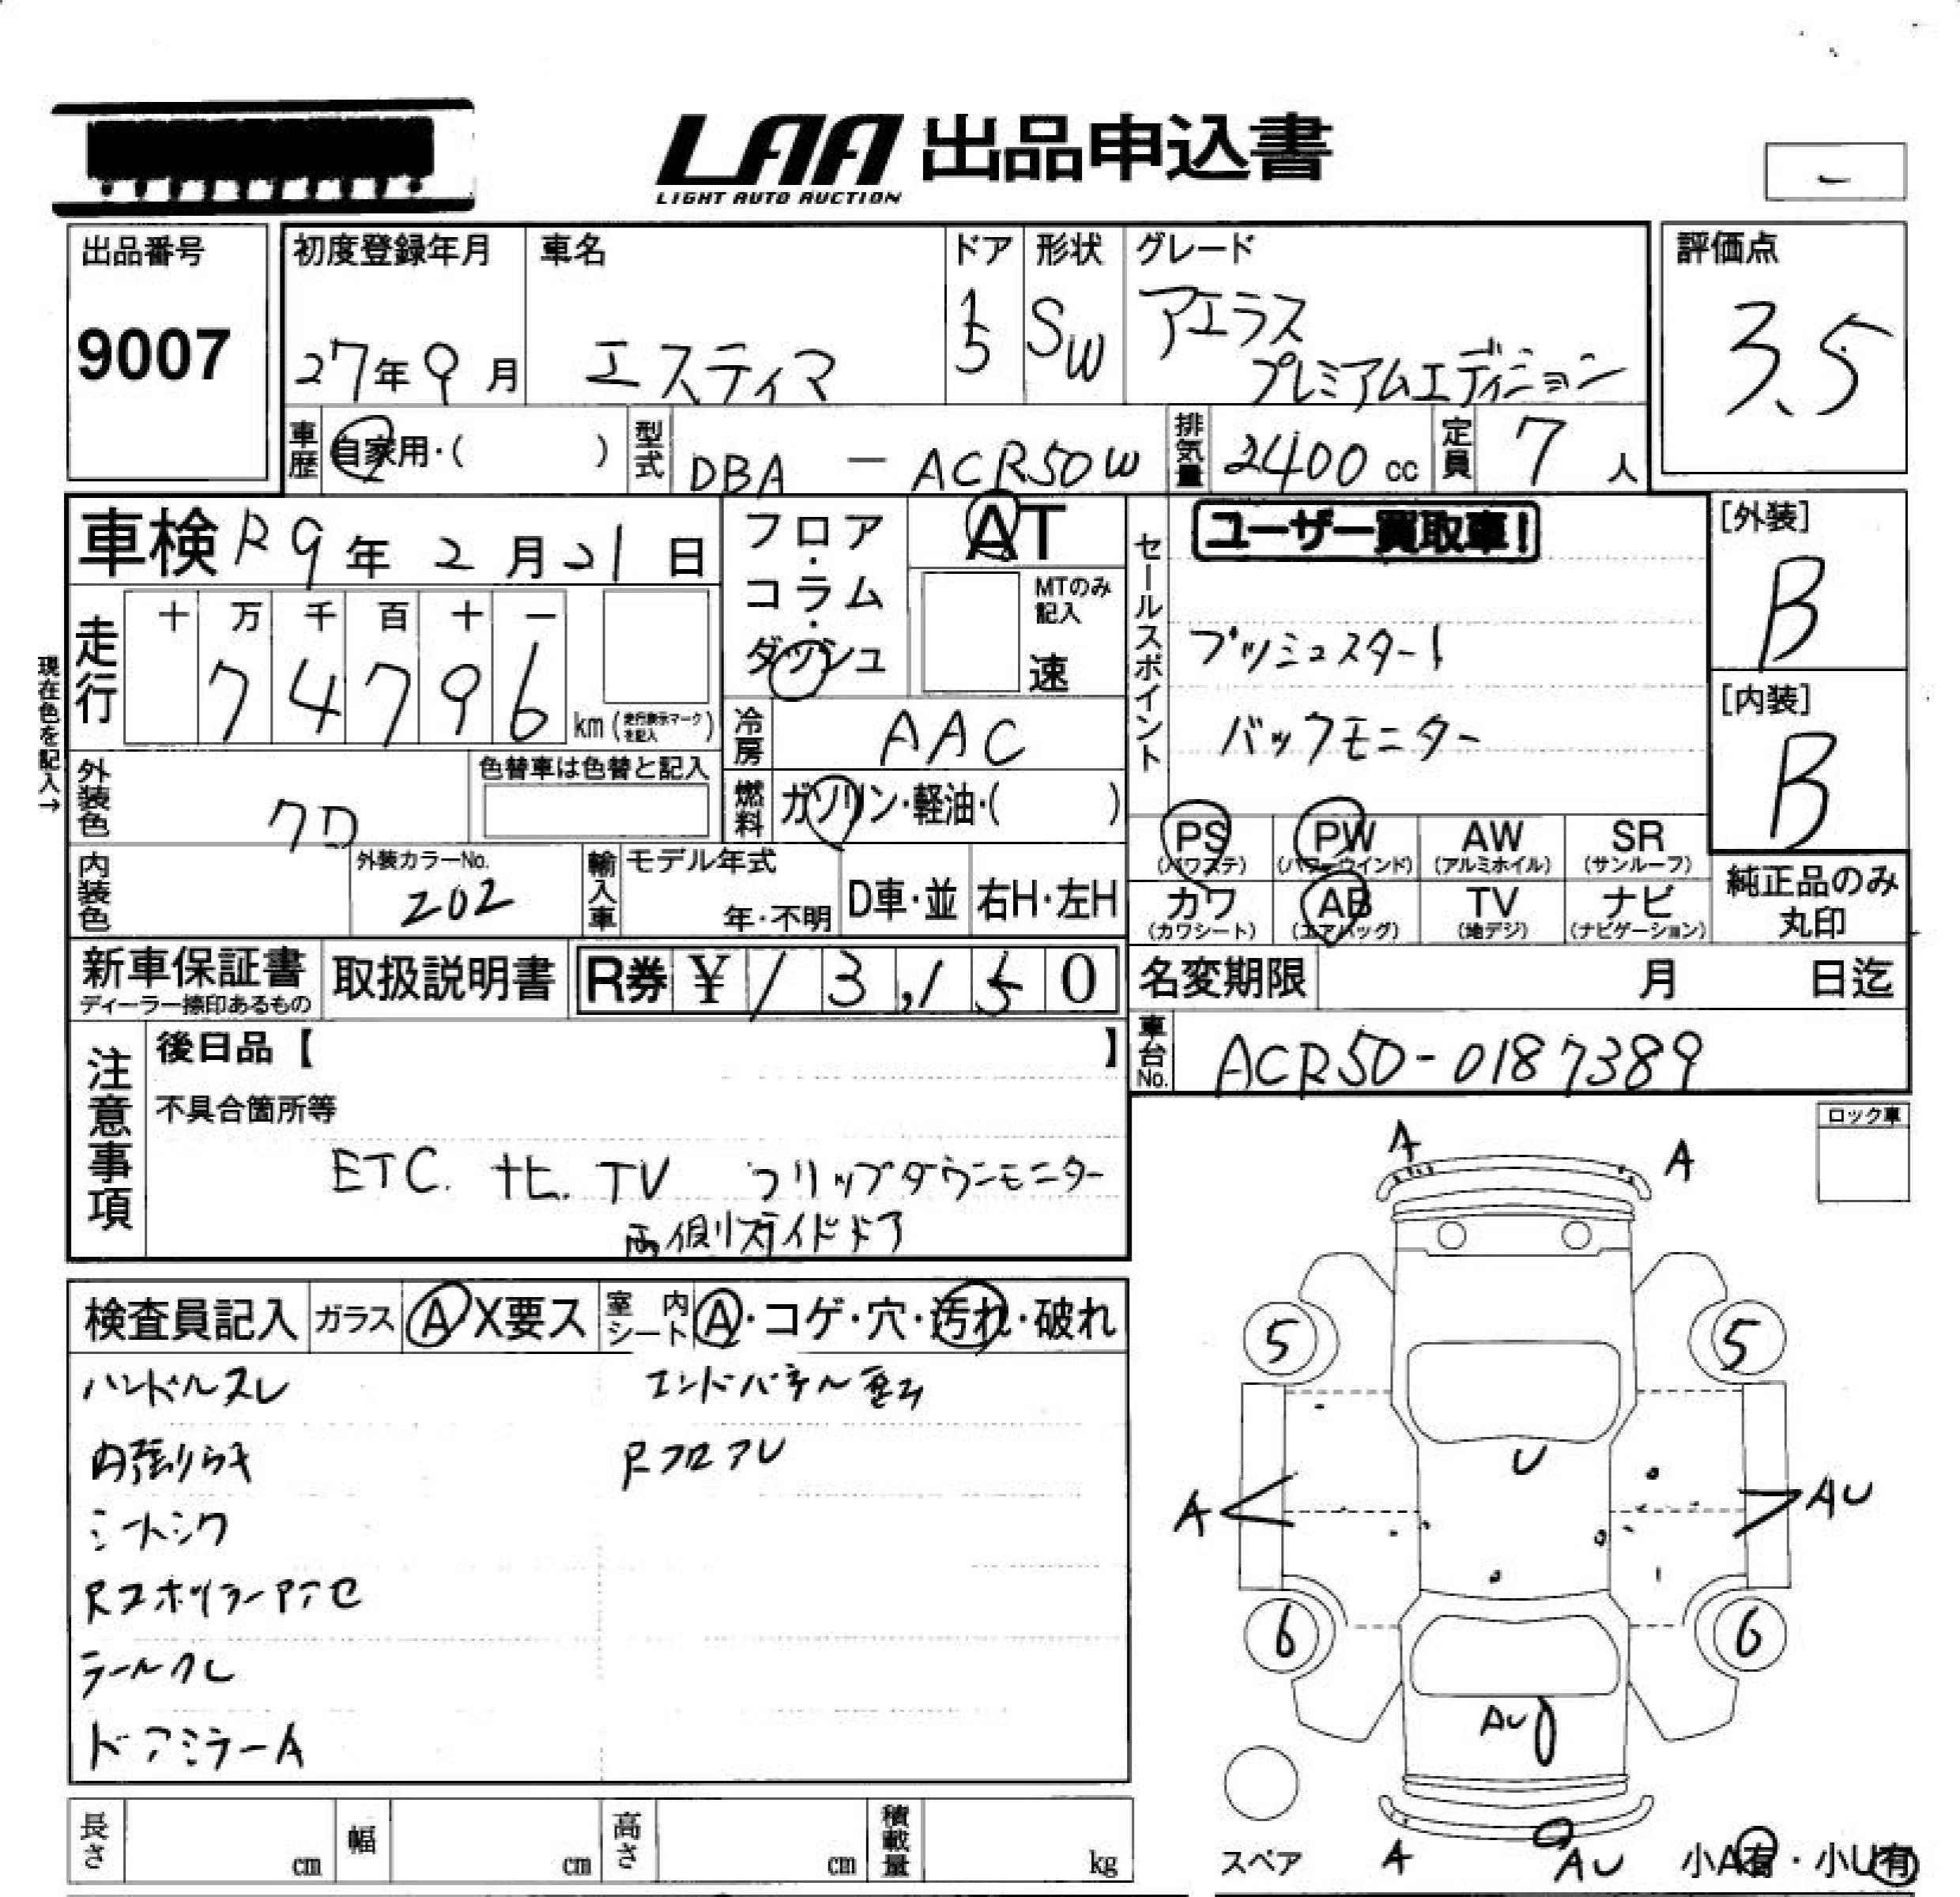 LAA 出品申込書
LIGHT AUTO AUCTION
出品番号
9007
初度登録年月
27年9月
車名
エスティマ
ドア
5
形状
SW
グレード
アエラス
プレミアムエディション
評価点
3.5
車歴
自家用・( )
型式
DBA - ACR50W
排気量
2400 cc
定員
7 人
車検 R9年2月21日
フロア・コラム・ダッシュ
AT
MTのみ記入
速
セールスポイント
ユーザー買取車!
プッシュスタート
バックモニター
[外装]
B
[内装]
B
現在色を記入→
走行
十 万 千 百 十 一
7 4 7 9 6
km (走行表示マークを記入)
冷房
AAC
外装色
クロ
色替車は色替と記入
燃料
ガソリン・軽油・( )
PS (パワステ)
PW (パワーウインド)
AW (アルミホイル)
SR (サンルーフ)
内装色
外装カラーNo.
202
輸入車
モデル年式
年・不明
D車・並
右H・左H
カワ (カワシート)
AB (エアバッグ)
TV (地デジ)
ナビ (ナビゲーション)
純正品のみ
丸印
新車保証書
ディーラー捺印あるもの
取扱説明書
R券 ¥13,150
名変期限
月 日迄
車台No.
ACR50-0187389
注意事項
後日品【 】
不具合箇所等
ETC. ナビ. TV フリップダウンモニター
両側Pスライドドア
ロック車
検査員記入
ガラス
A X要ス
室内シート
A・コゲ・穴・汚れ・破れ
ハンドルスレ
エンドパネル歪み
内張りキ
RフロアU
シートシワ
Rスポイラーアテ
テールクレ
ドアミラーA
A
A
5
5
U
A
AU
6
6
AU
スペア
A
AU
小A有・小U有
長さ
cm
幅
cm
高さ
cm
積載量
kg